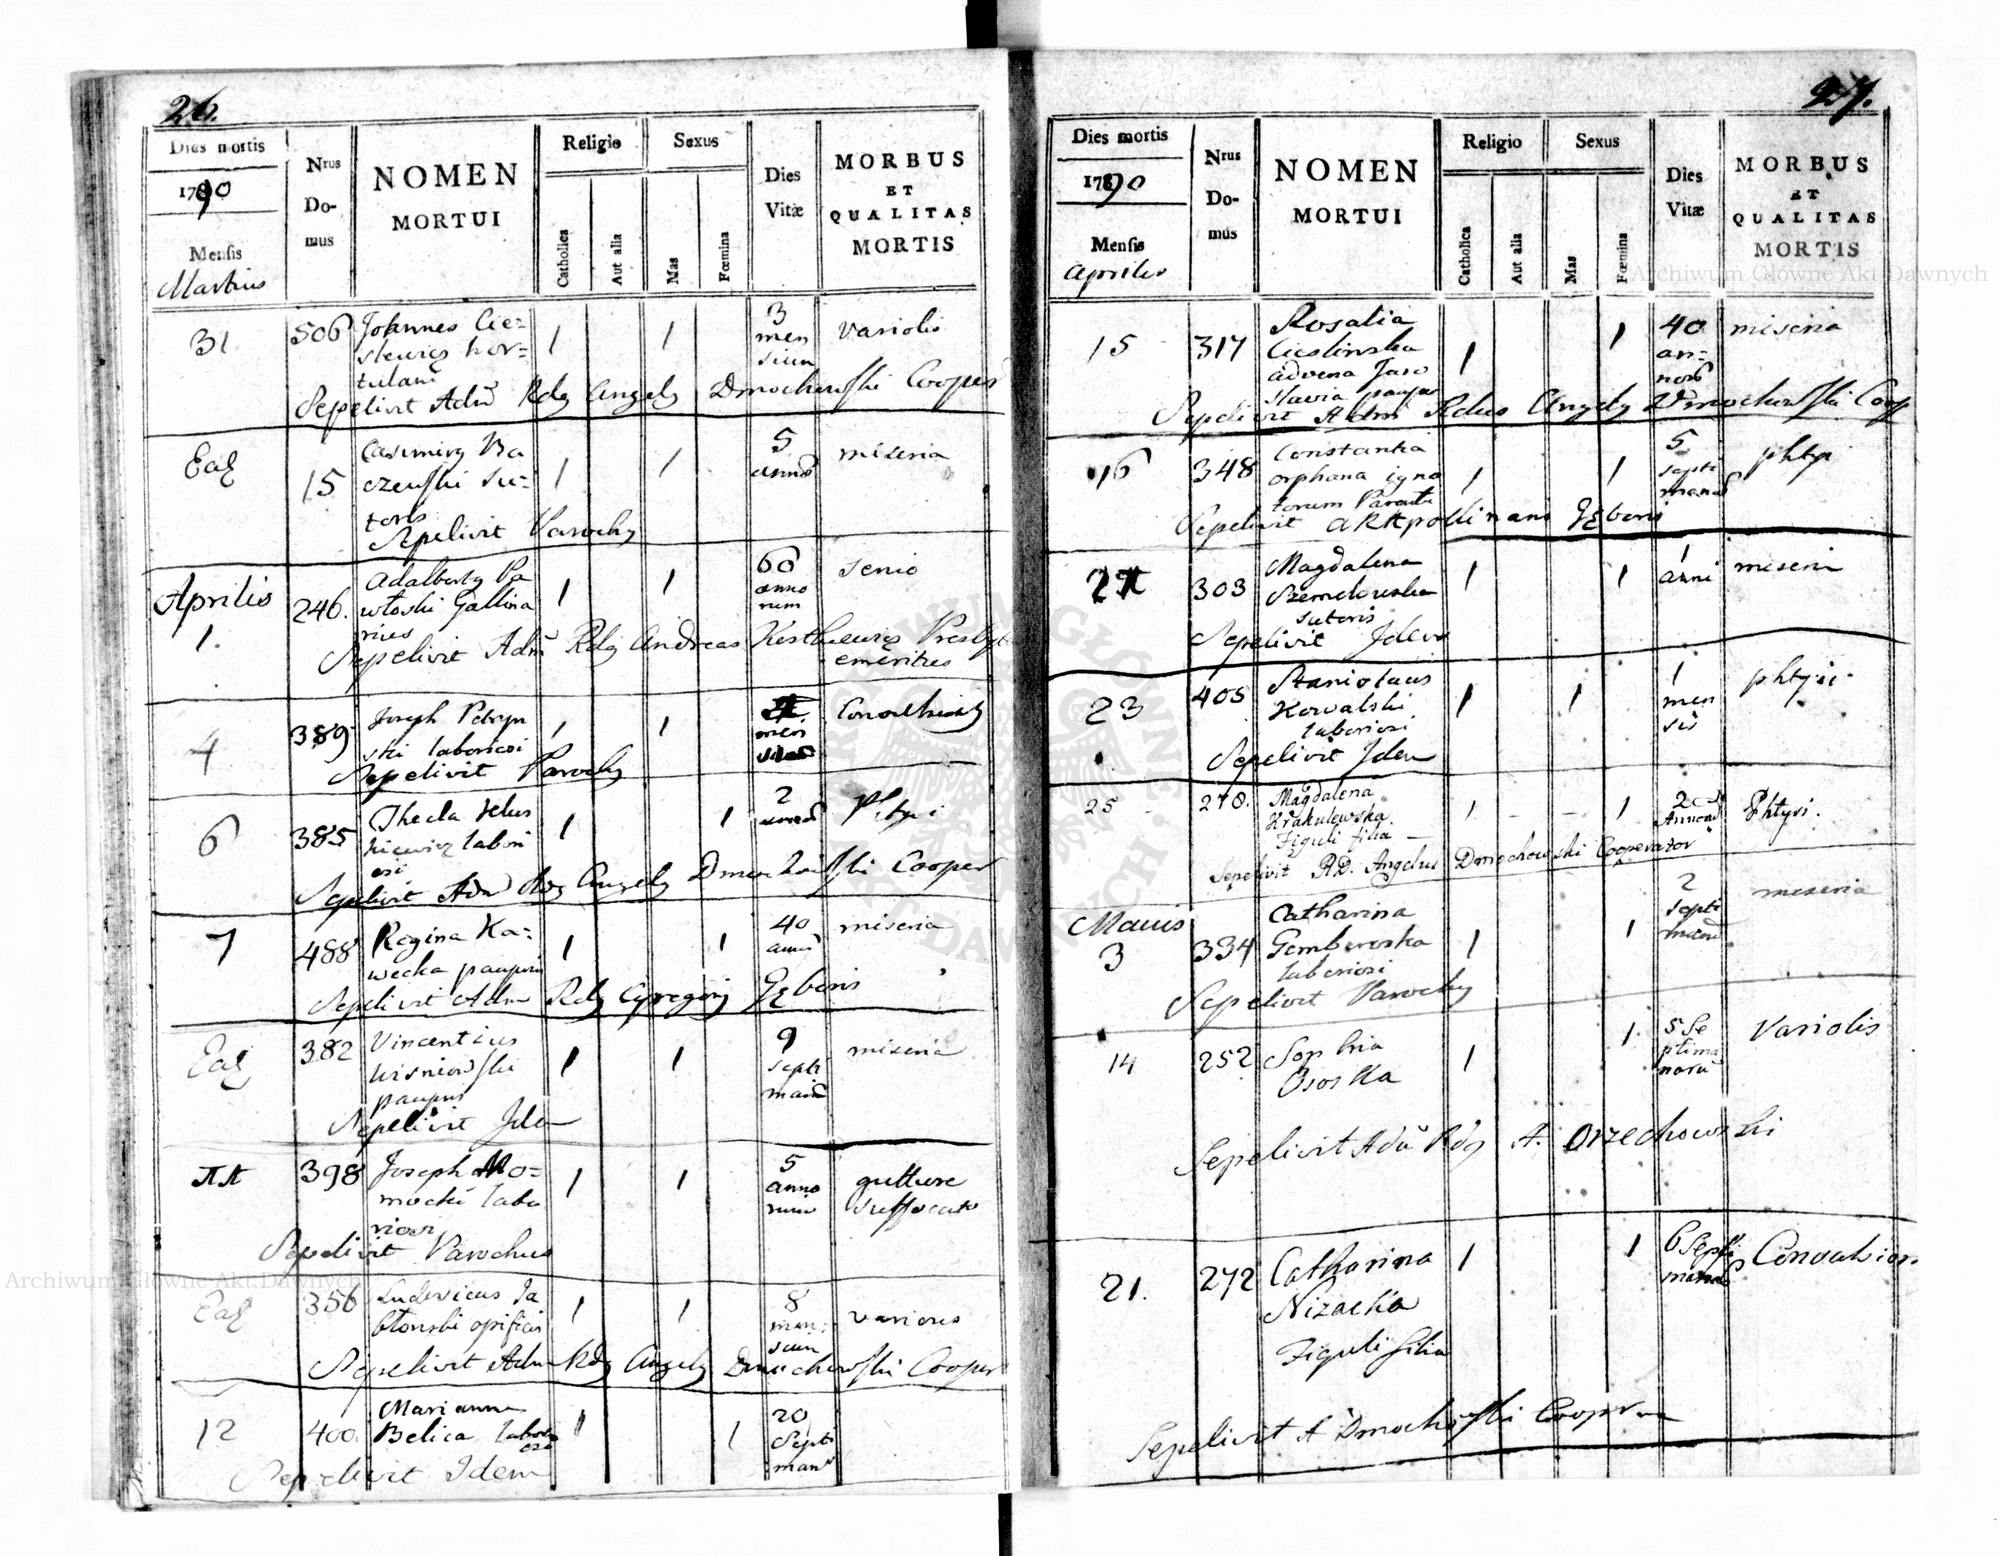 26.
Dies mortis
1790
Mensis
Martius
Nrus
Do-
mus
NOMEN
MORTUI
Religio
Catholica
Aut alia
Sexus
Mas
Fœmina
Dies
Vitæ
MORBUS
ET
QUALITAS
MORTIS
31
506
Johannes Cie=
slewicz hor=
tulani
1
1
3
men
sium
Variolis
Sepelivit Adm Rdg Angelg Dmochowski Cooper
Eag
15
Casimirg Ba
czewski Su=
toris
1
1
5
annor
miseria
Sepelivit Parochg
Aprilis
1.
246.
Adalbertg Pa
włoski Gallina
rius
1
1
60
anno
rum
senio
Sepelivit Adm Rdg Andreas Presbyt
emeritus
4
389
Joseph Petryn
ski laboriosi
1
1
men
Sepelivit Parochg
6
385
Thecla
labori
osi
1
1
2
Phtysi
Sepelivit Adm Rdg Angelg Dmochowski Cooper
7
488
Regina Ka=
wecka pauperis
1
1
40
anno
miseria
Sepelivit Adm Rdg Gregorig Gęboris
Eag
382
Vincentius
Wisniowski
pauper
1
1
9
septi
man
miseria
Sepelivit Idem
11
398
Joseph Mo=
mocki labo
riosi
1
1
5
anno
rum
gutture
suffocato
Sepelivit Parochus
Eag
356
Ludovicus Ja
błonski opificis
1
1
8
men
sium
variolis
Sepelivit Adm Rdg Angelg Dmochowski Cooper
12
400.
Marianna
Belica labori
osi
1
1
20
Septi
man
Sepelivit Idem
27.
Dies mortis
1790
Mensis
Aprilis
Nrus
Do-
mus
NOMEN
MORTUI
Religio
Catholica
Aut alia
Sexus
Mas
Fœmina
Dies
Vitæ
MORBUS
ET
QUALITAS
MORTIS
15
317
Rosalia
Cieslinska
advena Jaro
slavia pauper
1
1
40
an=
nor
miseria
Sepelivit Adm Rdus Angelg Dmochowski Coop
16
348
Constantia
orphana igno
torum Parent
1
1
5
septi
manar
phtysi
Sepelivit Gęboris
303
Magdalena
Szemelowska
sutoris
1
1
1
anni
miseria
Sepelivit Idem
23
405
Stanislaus
Kowalski
laboriosi
1
1
1
men
sis
phtysi
Sepelivit Idem
25
278.
Magdalena
Krakulewska
Figuli filia
1
1
2
Annor
Phtysi.
Sepelivit RD. Angelus Dmochowski Cooperator
Maius
3
334
Catharina
Gemborska
laboriosi
1
1
2
septi
man
miseria
Sepelivit Parochg
14
252
Sophia
Ososka
1
1
5 Se
ptima
naru
Variolis
Sepelivit Adm Rdg A. Orzechowski
21.
272
Catharina
Nizacka
Figuli filia
1
1
6 Septi
manar
Convulsion
Sepelivit A Dmochowski Cooper
Archiwum Główne Akt Dawnych
Archiwum Główne Akt Dawnych
ARCHIWUM GŁÓWNE AKT DAWNYCH